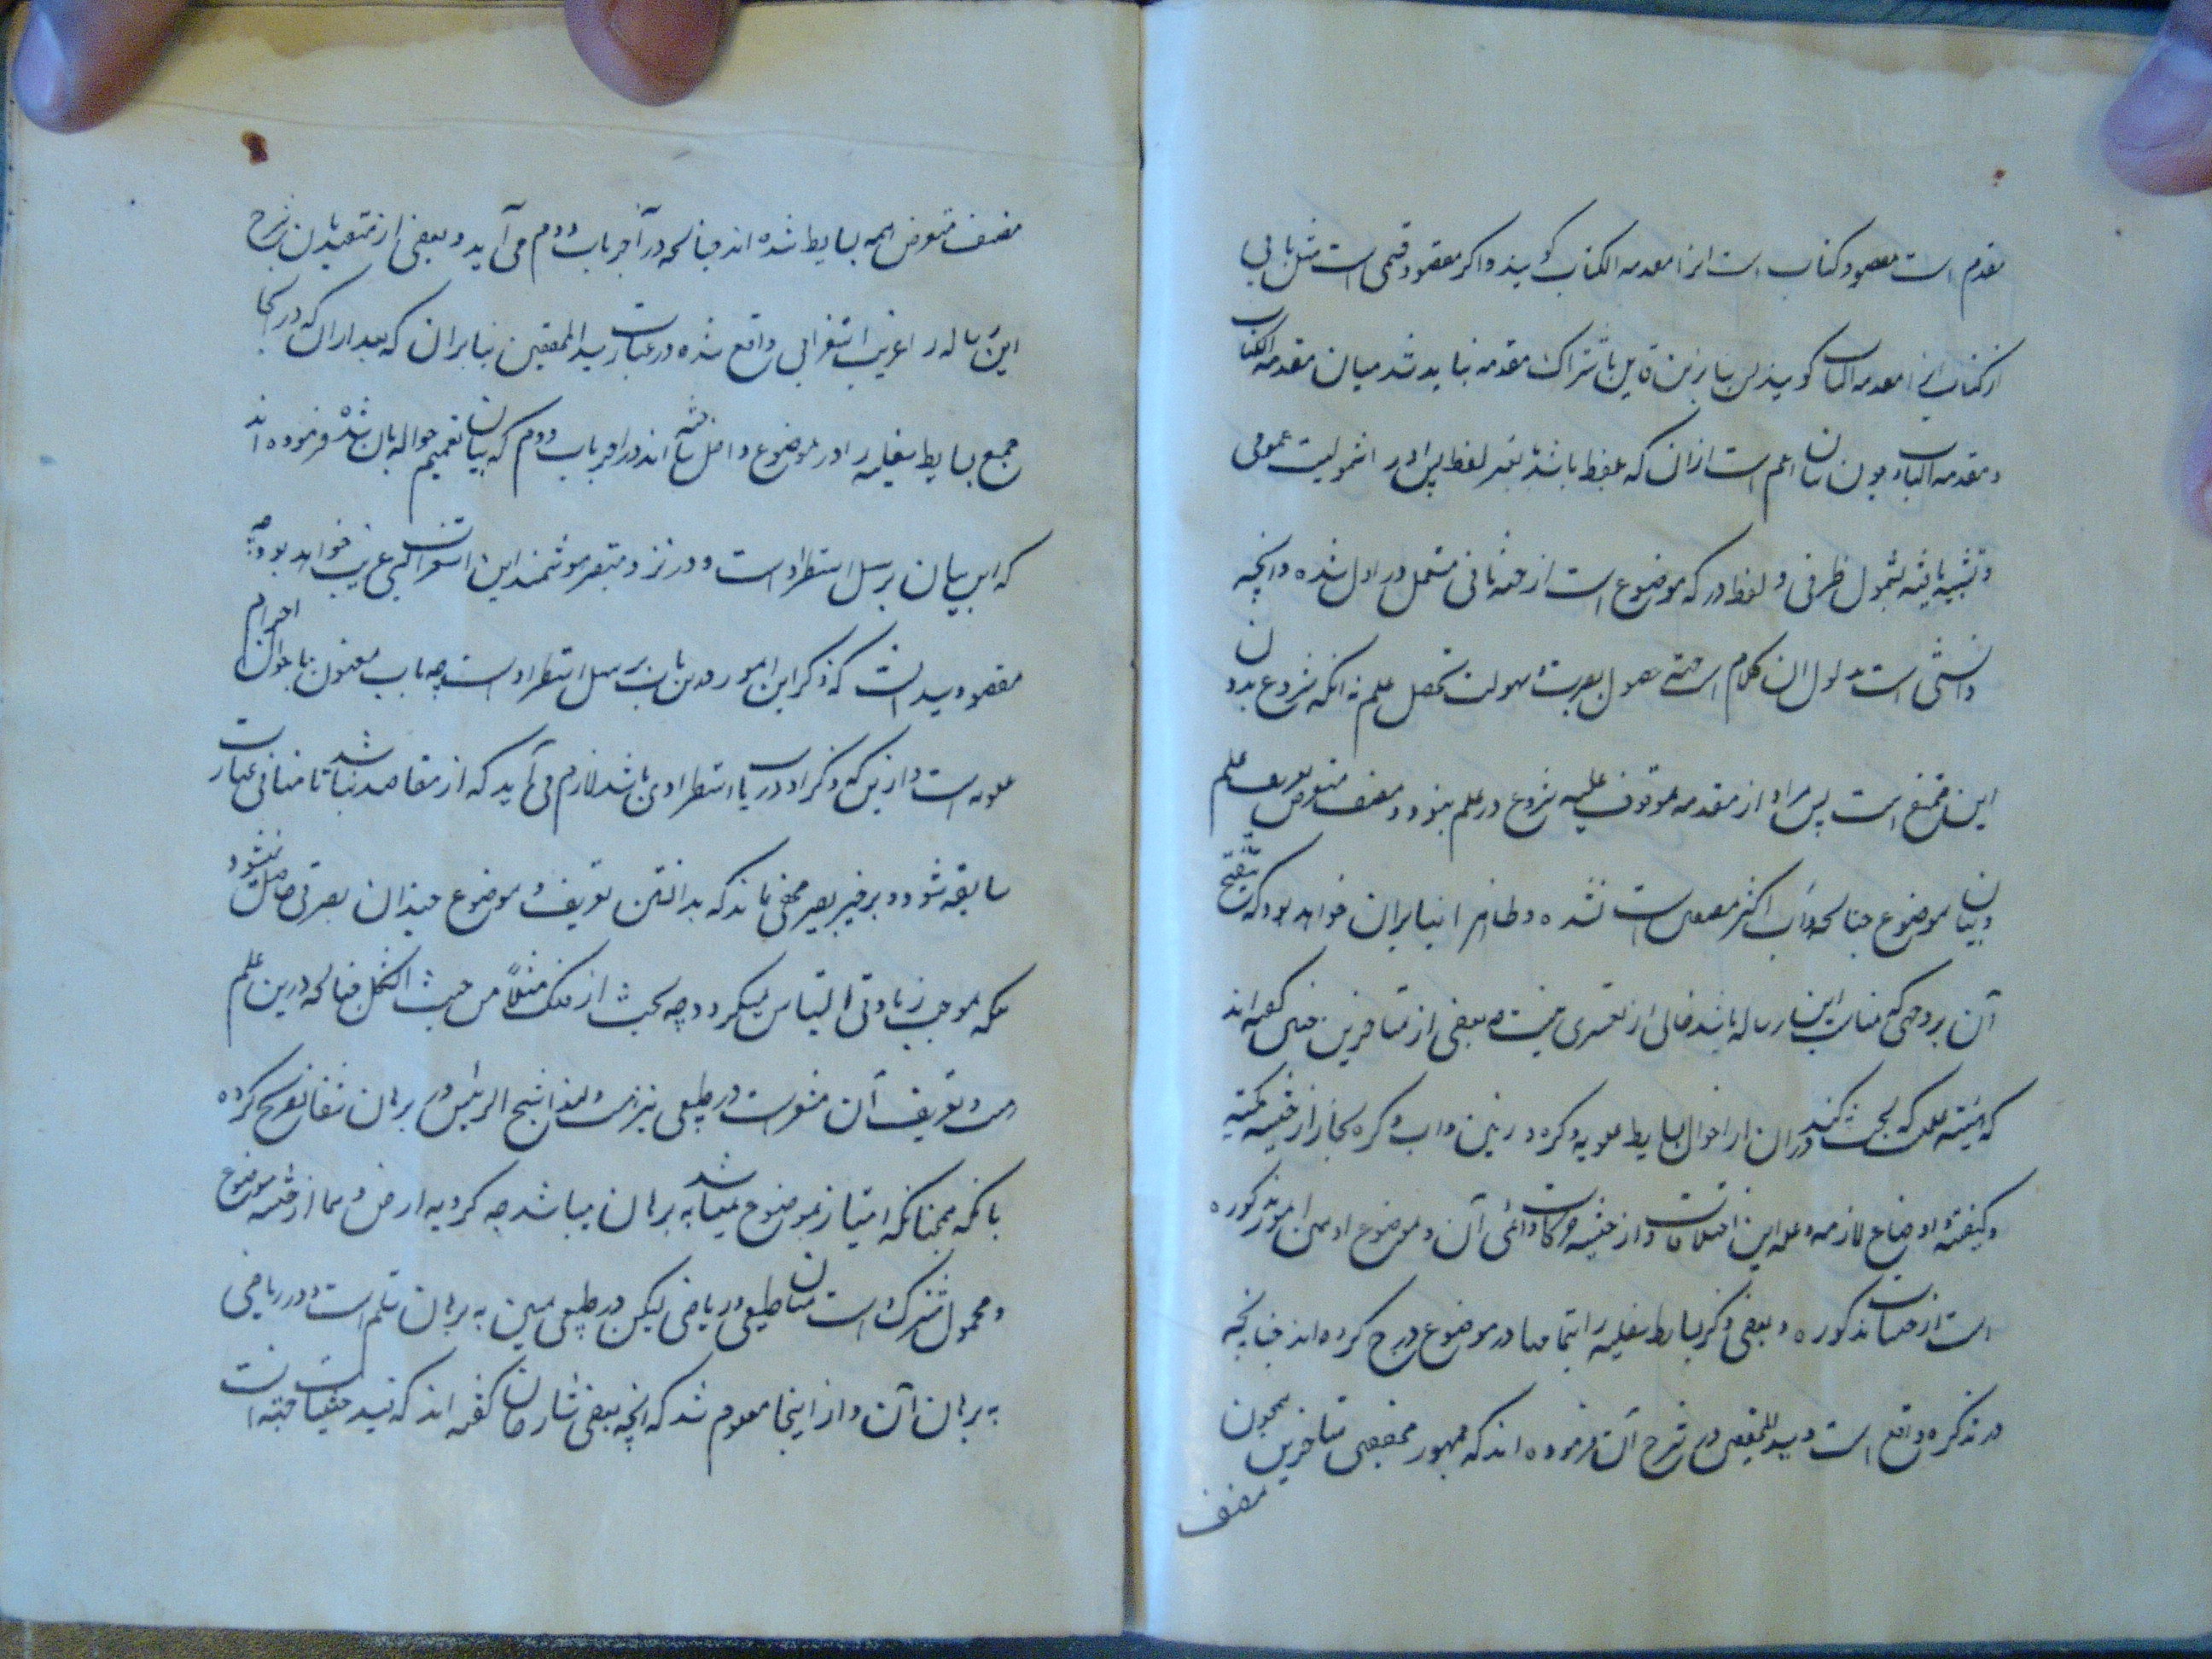 مقدم است مقصود کتاب است انرا مقدمه الکتاب کویند و اکر مقصود قسمی است مثل بابی
از کتاب انرا مقدمه الباب کویند پس بنابرین قایل باشتراک مقدمه نباید شد میان مقدمه الکتاب
و مقدمه الباب چون بیان اعم است ازان که بلفظ باشد یا بغیر لفظ پس او را شمولیت عمومی
و تشبیه یافته بشمول ظرفی و لفظ در که موضوع است از جهة ثانی مستعمل در اول شده و انچه
دانستنی است مدلول ان کلام است جهة حصول بصیرت و سهولت تحصیل علم نه انکه شروع بدون
این ممتنع است پس مراد از مقدمه موقوف علیه شروع در علم نبود و مصنف متعرض تعریف علم
و بیان موضوع چنانچه داب اکثر مصنفین است نشده و ظاهرا بنابران خواهد بود که تنقیح
آن بر وجهی که مناسب این رساله باشد خالی از تعسری نیست و بعضی از متاخرین چنین کفته اند
که هیئت علمی است که بحث کنند دران از احوال بسایط علویه و کره زمین و اب و کره بخار از حیثیت کمیت
و کیفیت و اوضاع لازمه و علة این اختلافات و از حیثیت حرکات دائمی آن و موضوع او همین امور مذکوره
است از حیثیات مذکوره و بعضی ذکر بسایط سفلیه را بتمامها در موضوع درج کرده اند چنانچه
در تذکره واقع است و سید المحققین در شرح آن فرموده اند که جمهور محققین متاخرین همچون
مصنف
مصنف متعرض همه بسایط شده اند چنانچه در آخر باب دوم می آید و بعضی از متصدیان شرح
این رساله را غریب استغرابی واقع شده در عبارت سید المحققین بنابران که بعد از ان که در اینجا
جمیع بسایط سفلیه را در موضوع داخل داشته اند در اخر باب دوم که بیان تعمیم حواله بان شد فرموده اند
که این بیان بر سبیل استطراد است و در نزد متبصر هوشمند این استغراب بسی غریب خواهد بود چه
مقصود سید انست که ذکر این امور درین باب بر سبیل استطراد است چه باب معنون باحوال اجرام
علویه است و ازین که ذکر او در باب استطرادی باشد لازم نمی آید که از مقاصد نباشد تا منافی عبارت
سابقه شود و بر خبیر بصیر مخفی نماند که بدانستن تعریف و موضوع چندان بصیرتی حاصل نمیشود
بلکه موجب زیادتی التباس میکردد چه بحث از فلک مثلاً من حیث الشکل چنانچه درین علم
است و تعریف آن مشعرست در طبیعی نیز هست و لهذا شیخ الرئیس در برهان شفا تصریح کرده
بانکه همچنانکه امتیاز بموضوع میباشد به برهان میباشد چه کرویه ارض و سما از حیثیه موضوع
و محمول مشترک است میان طبیعی و ریاضی لیکن در طبیعی مبین به برهان لم است و در ریاضی
به برهان آن و از اینجا معلوم شد که انچه بعضی شارحان کفته اند که قید حیثیات جهة انست